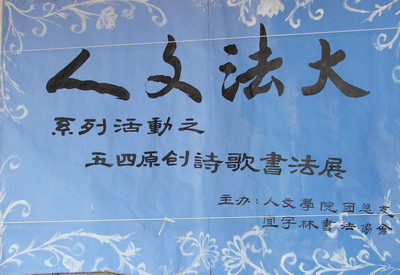 人文法大
系列活動之
五四原创詩歌書法展
主办:人文學院团总支
宜字林書法協會